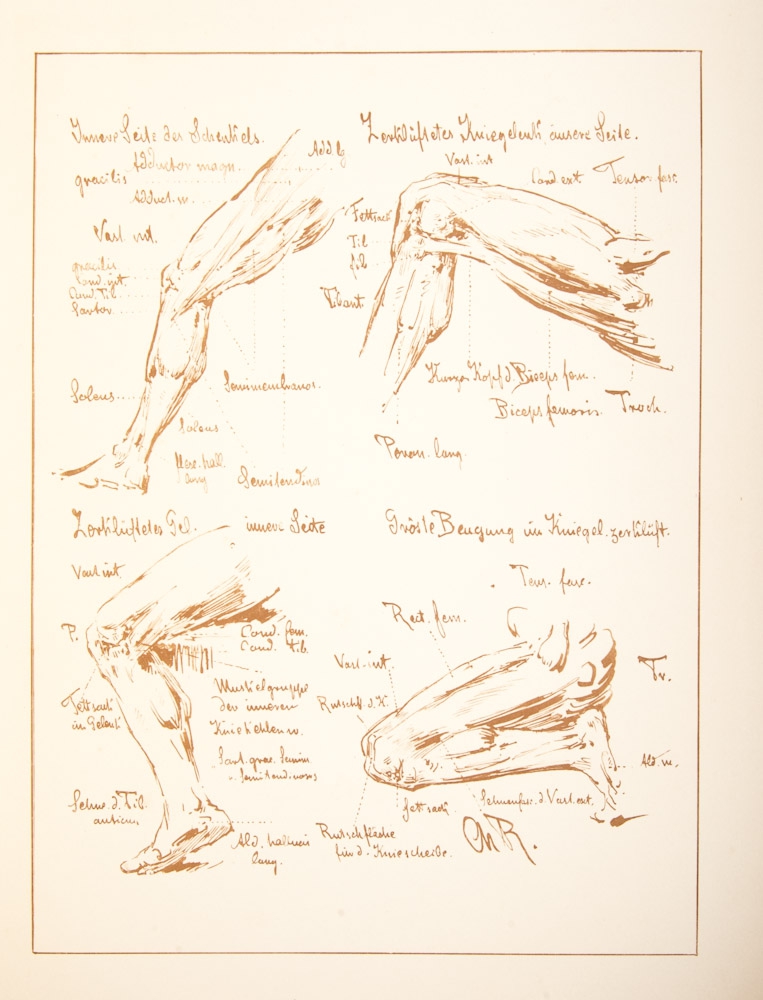 Innere Seite des Schenkels.
Adductor magn.
gracilis
Adduct. m.
Add. lg
Vast. int.
gracilis
Cond. int.
Cond. Tib
Sartor.
Soleus
Semimembranos.
Soleus
flex. hall.
long
Semitendinos
Zerklüftetes Kniegelenk äusere Seite.
Vast. int
Cond ext
Tensor fasc.
Fettsack
Tib
fib
Tib ant
Kurzer Kopf d. Biceps fem.
Biceps femoris.
Troch.
Peron. lang.
Zerklüftetes Gel. innere Seite
Vast int.
P.
Cond. fem.
Cond. tib.
Fettsack
im Gelenk
Muskelgruppe
der inneren
Sart. grac. Semim
u. Semitendinosus
Sehne d. Tib.
anticus
lang.
Gröste Beugung im Kniegel. zerklüft.
Tens. fasc.
Rect. fem.
Vast. int.
Tr.
Rutschf. d. K.
Fettsack
Sehnenfasc. d. Vast. ext.
Rutschfläche
für d. Kniescheibe.
Ch R.